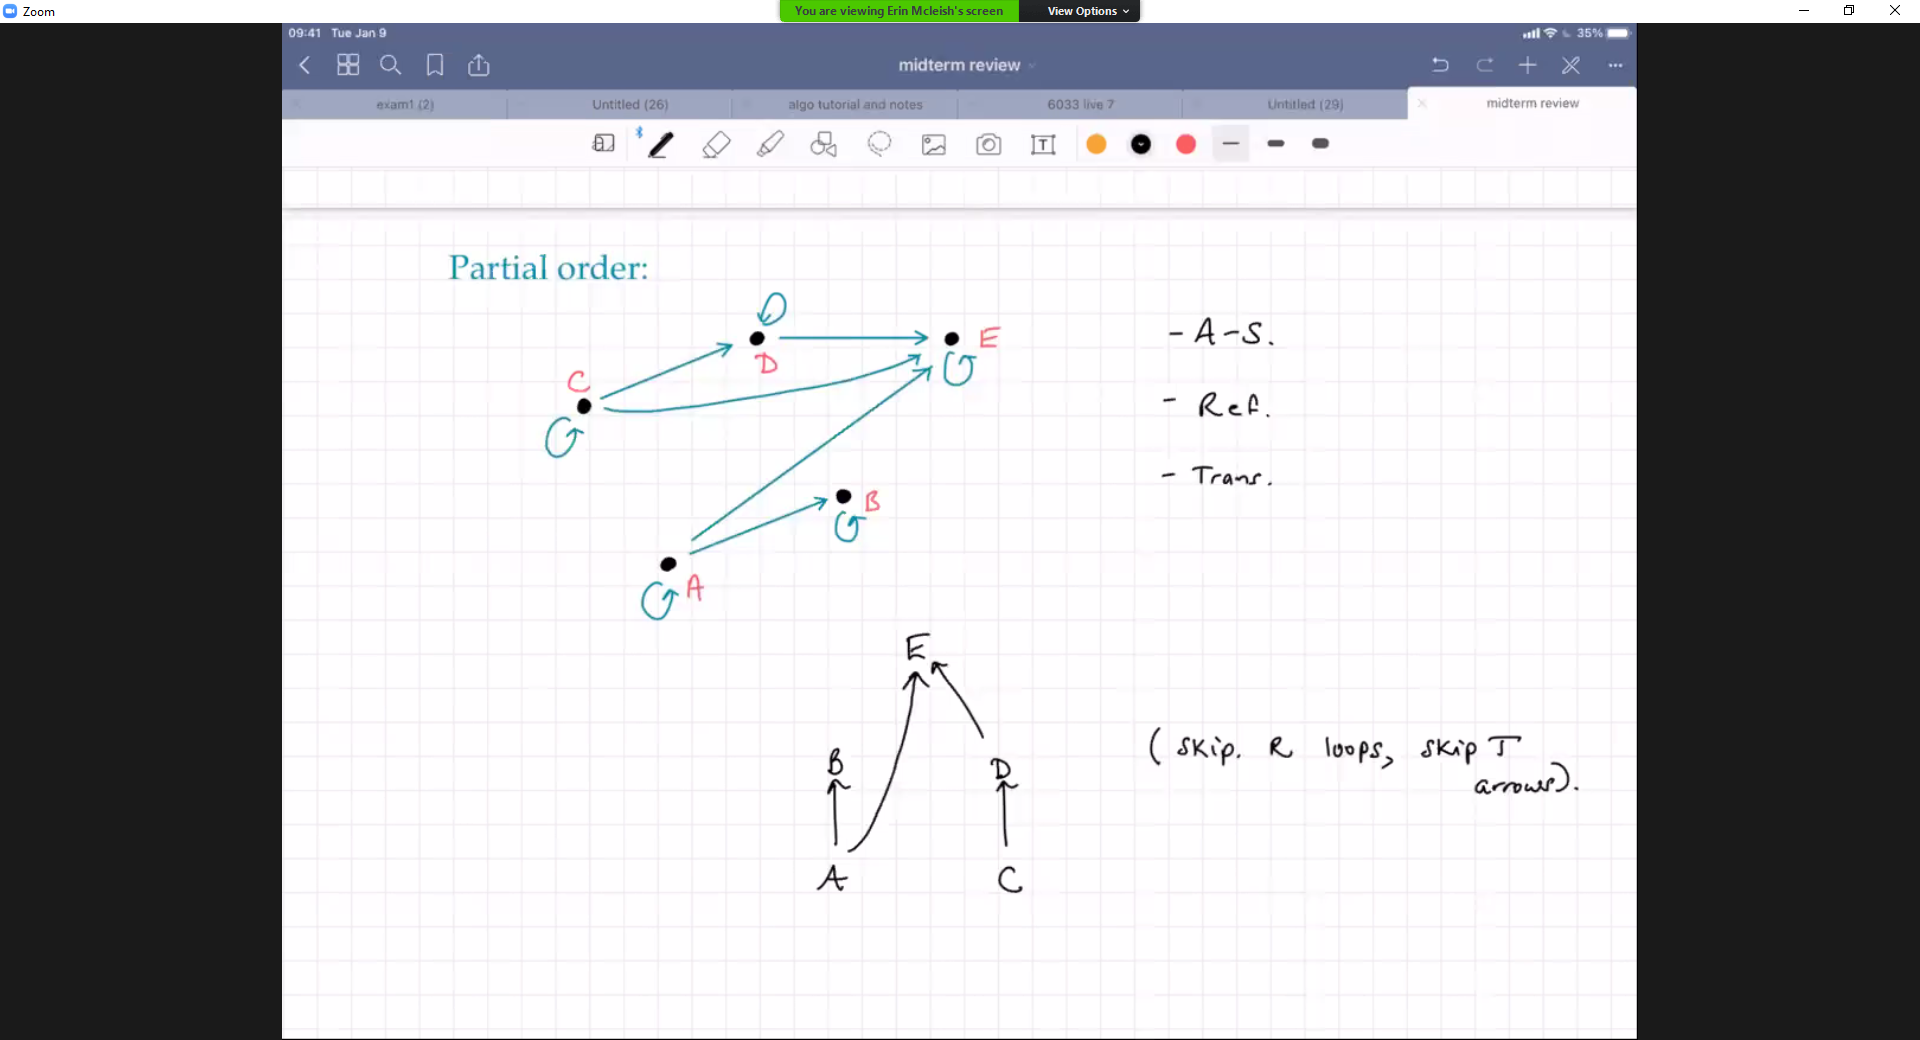 Zoom
You are viewing Erin Mcleish's screen
View Options
09:41 Tue Jan 9
35%
midterm review
exam1 (2)
Untitled (26)
algo tutorial and notes
6033 live 7
Untitled (29)
midterm review
T
Partial order:
D
E
C
B
A
- A-S.
- Ref.
- Trans.
E
B
D
A
C
( skip. R loops, skip T
arrows).